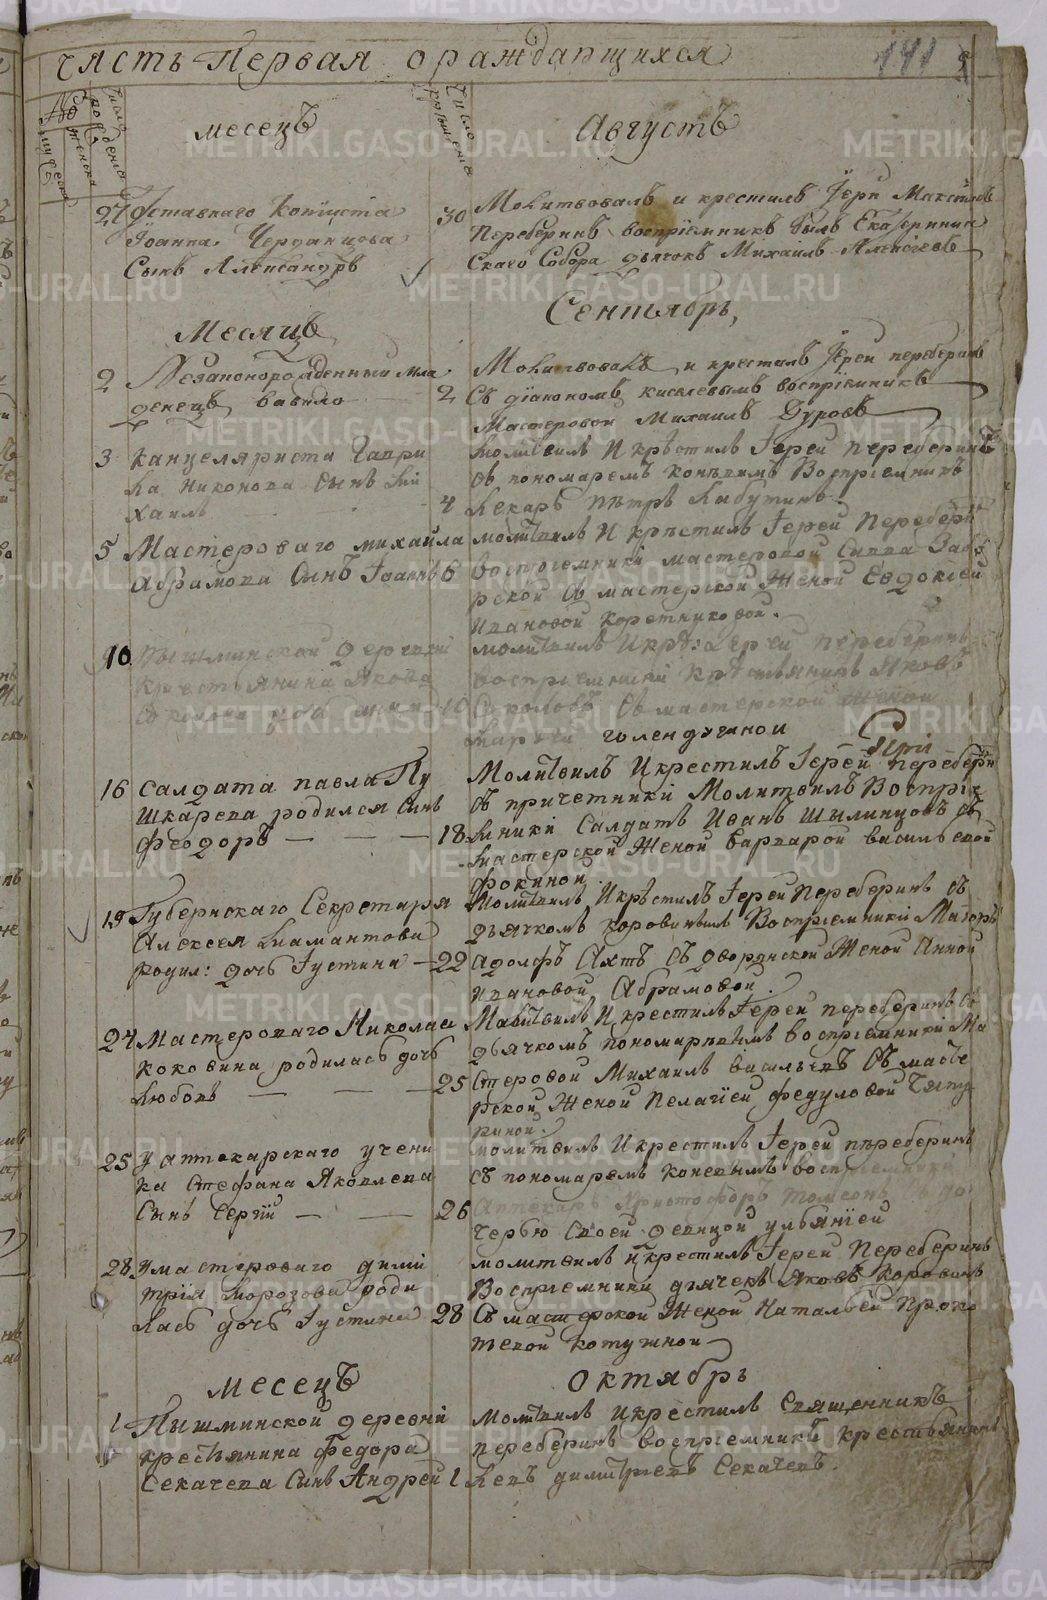 часть Первая о раждающихся
141
месецъ Августъ
27 Отставнаго Копіиста
Іоанна Черданцова
Сынъ Александръ
30 Молитвовалъ и крестилъ Іерей Максимъ
Переберинъ воспріемникъ былъ Екатеринин
скаго Собора дьячокъ Михаилъ Алексеевъ
Месяцъ Сентябрь,
2 Незаконорожденный мла
денецъ вавило
2 Молитвовалъ и крестилъ Іерей переберинъ
Съ діакономъ киселевымъ воспріемникъ
Мастеровой Михаилъ Дуровъ
3 Канцеляриста Гаври
ла Никонова сынъ Ми
хаилъ
4 Молитвилъ И крестилъ Іерей Переберинъ
съ пономаремъ коневымъ Воспріемникъ
Лекарь Петръ Лабутинъ
5 Мастероваго михайла
Абрамова Сынъ Іоаннъ
6 молитвилъ И крестилъ Іерей Перебери
воспріемники мастеровой Савва Забо
рской съ мастерской Женой Евдокіей
Ивановой Коретниковой.
10 Пышминской деревни
крестьянина Якова
Соколова
10 молитвилъ И крес: Іерей переберинъ
воспріемники крестьянинъ Яковъ
Соколовъ Съ мастерской Женой
Марьей голендухиной
16 Салдата павла Пу
шкарева родился сынъ
феодоръ
18 Молитвилъ И крестилъ Іерей Перебери
съ причетники Молитвилъ Воспріе
мники Салдатъ Иванъ Шылинцовъ съ
мастерской Женой варварой васильевой
фокиной
19 Губернскаго Секретаря
Алексея Мамантова
родил: дочь Іустина
22 Молитвилъ И крестилъ Іерей Переберинъ съ
дьячкомъ коровинымъ Воспріемники Маіоръ
Адольфъ Ахтъ Съ дворянской Женой Анной
Ивановой Абрамовой.
24 Мастероваго Николая
Коковина родилась дочь
Любовь
25 Малитвилъ И крестилъ Іерей переберинъ со
дьячкомъ пономаревымъ воспріемники Ма
стеровой Михаилъ васильевъ Съ масте
рской Женой Пелагіей федуловой Чепу
риной.
25 у аптекарскаго учени
ка Стефана Яковлева
Сынъ Сергій
26 молитвилъ И крестилъ Іерей переберинъ
съ пономаремъ коневымъ воспріемники
Аптекарь Христофоръ Томсонъ съ до
черью Своей девицой ульяніей
28 У мастероваго дими
трія Морозова роди
лась дочь Іустина
28 молитвилъ И крестилъ Іерей Переберинъ
Воспріемники дьячекъ Яковъ Коровинъ
Съ мастерской Женой Натальей Проко
пьевой котухиной
месецъ октябрь
1 Пышминской деревни
крестьянина Федора
Секачева Сынъ Андрей
1 молитвилъ И крестилъ Священникъ
переберинъ воспріемникъ крестьянинъ
Левъ димитріевъ Секачевъ.